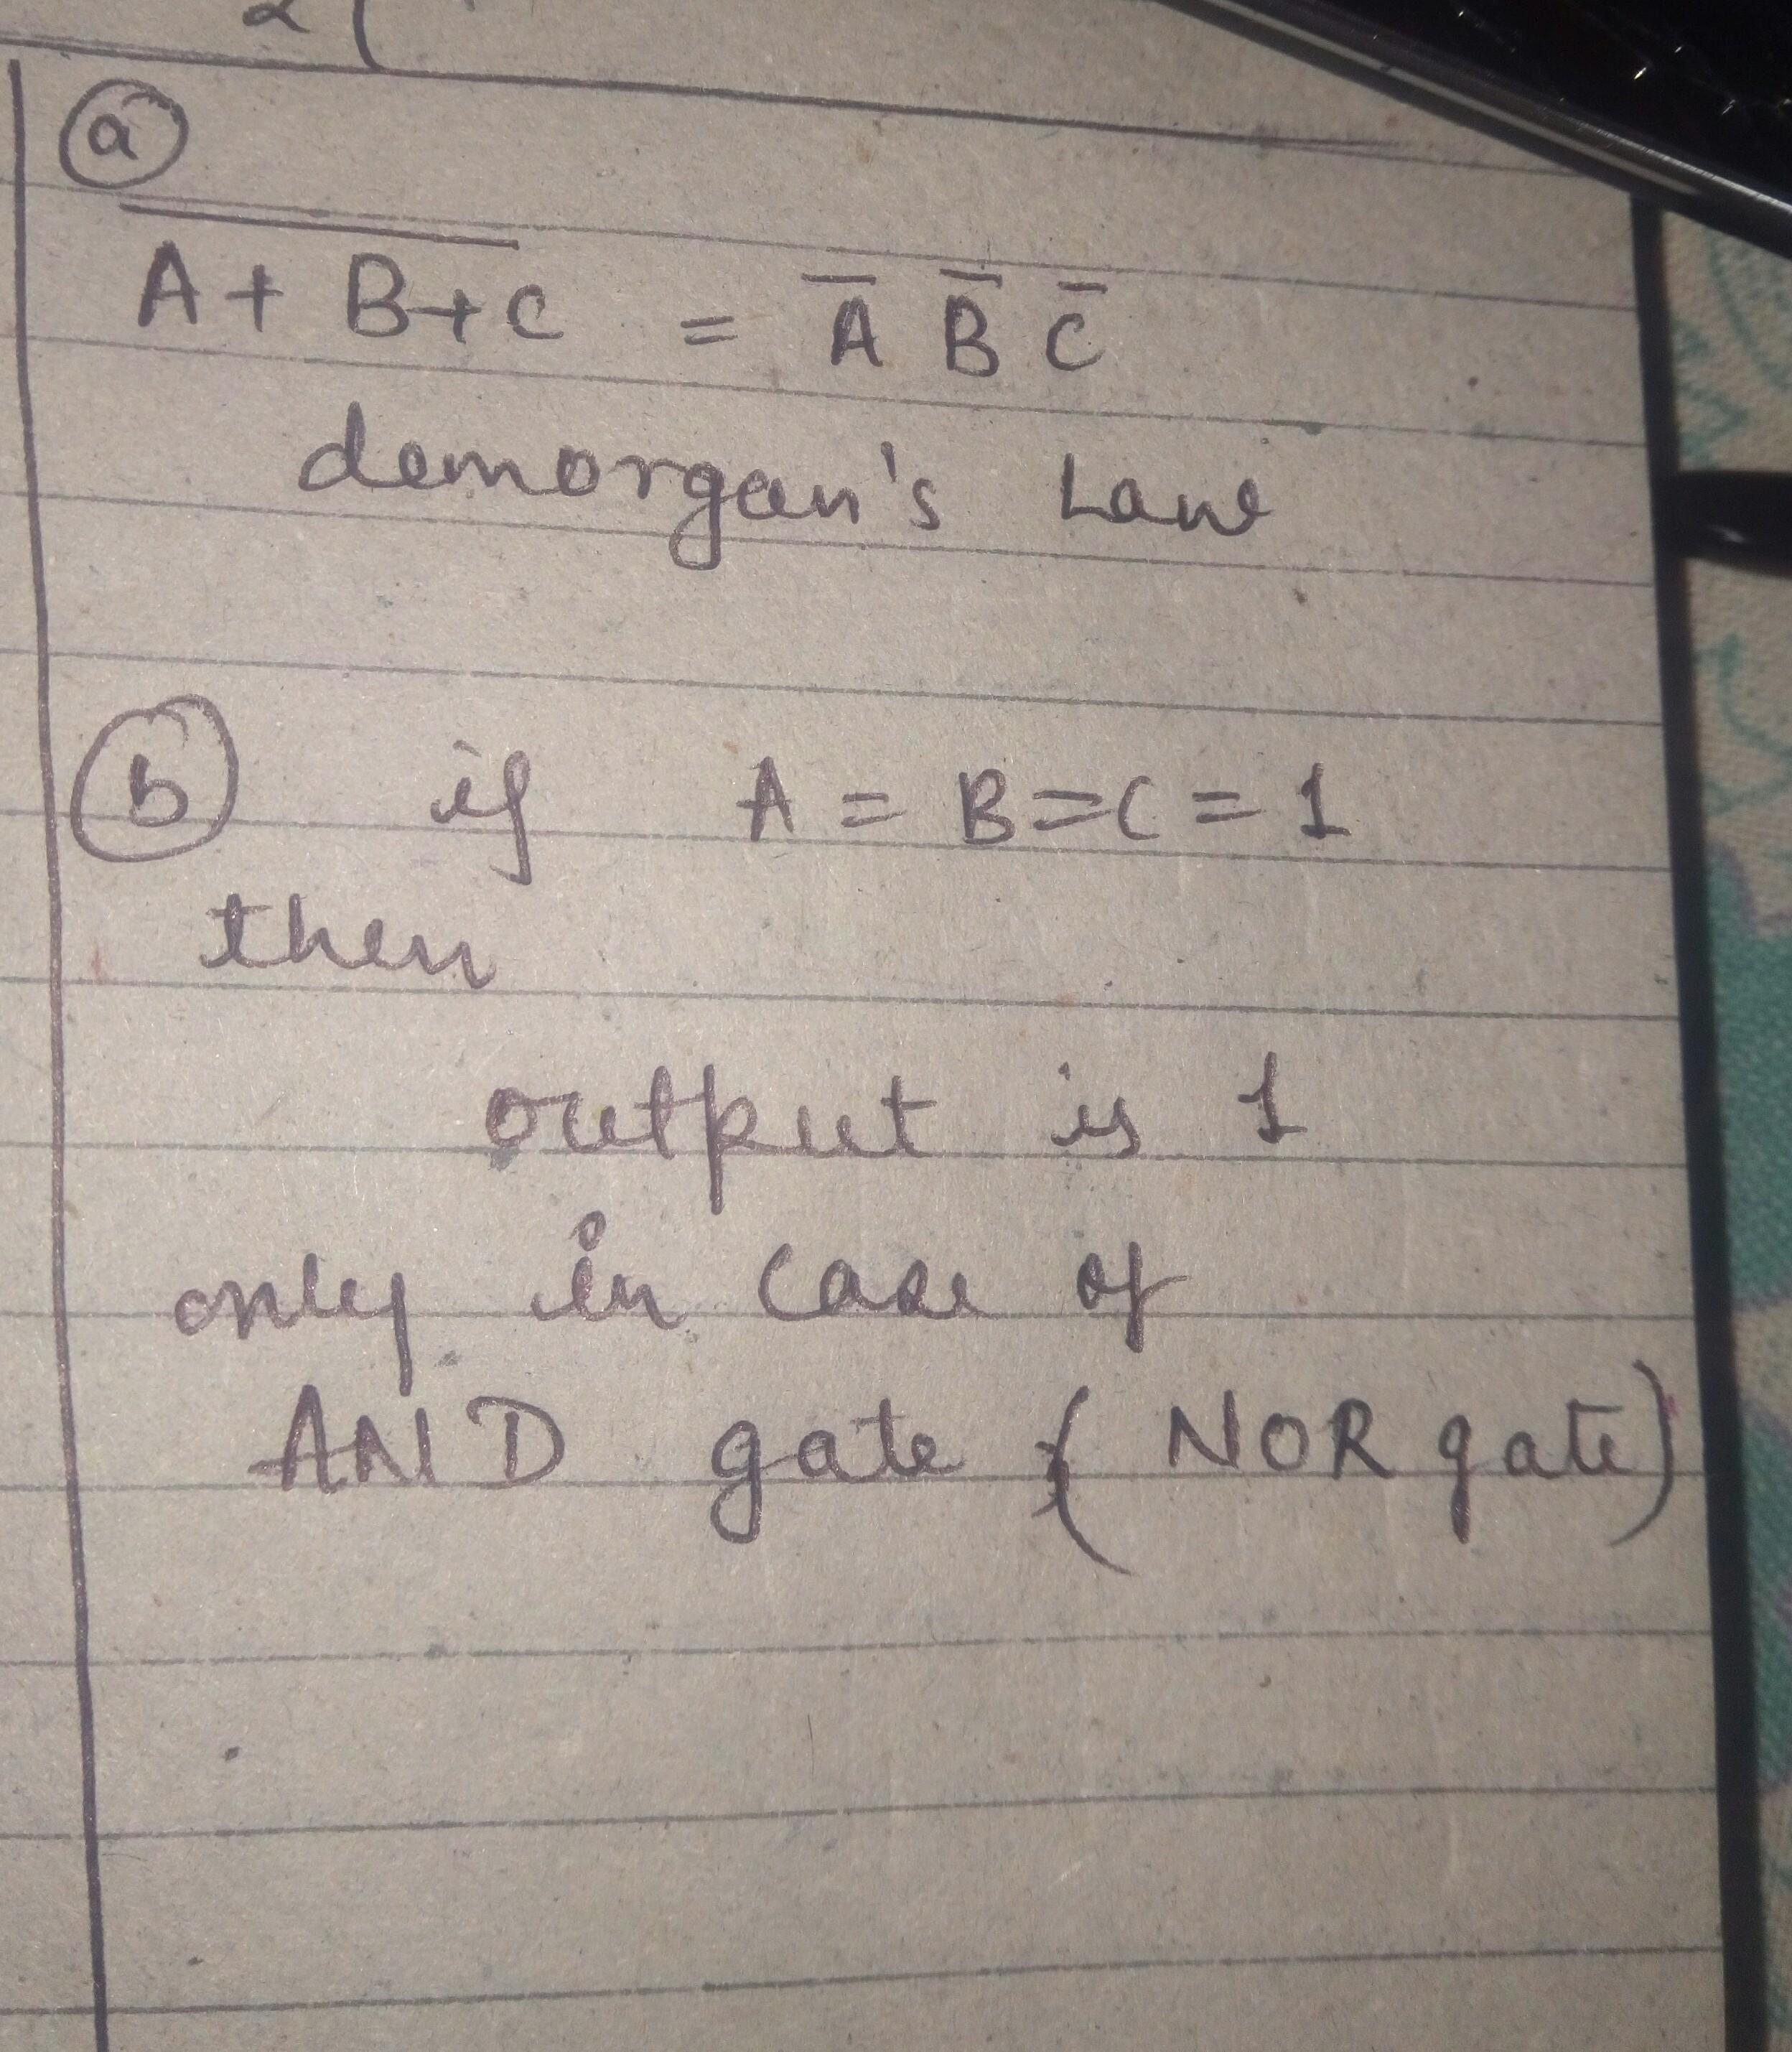 a
A + B + C = A̅ B̅ C̅
demorgan's Law
b if A = B = C = 1
then
output is 1
only in case of
AND gate ( NOR gate)